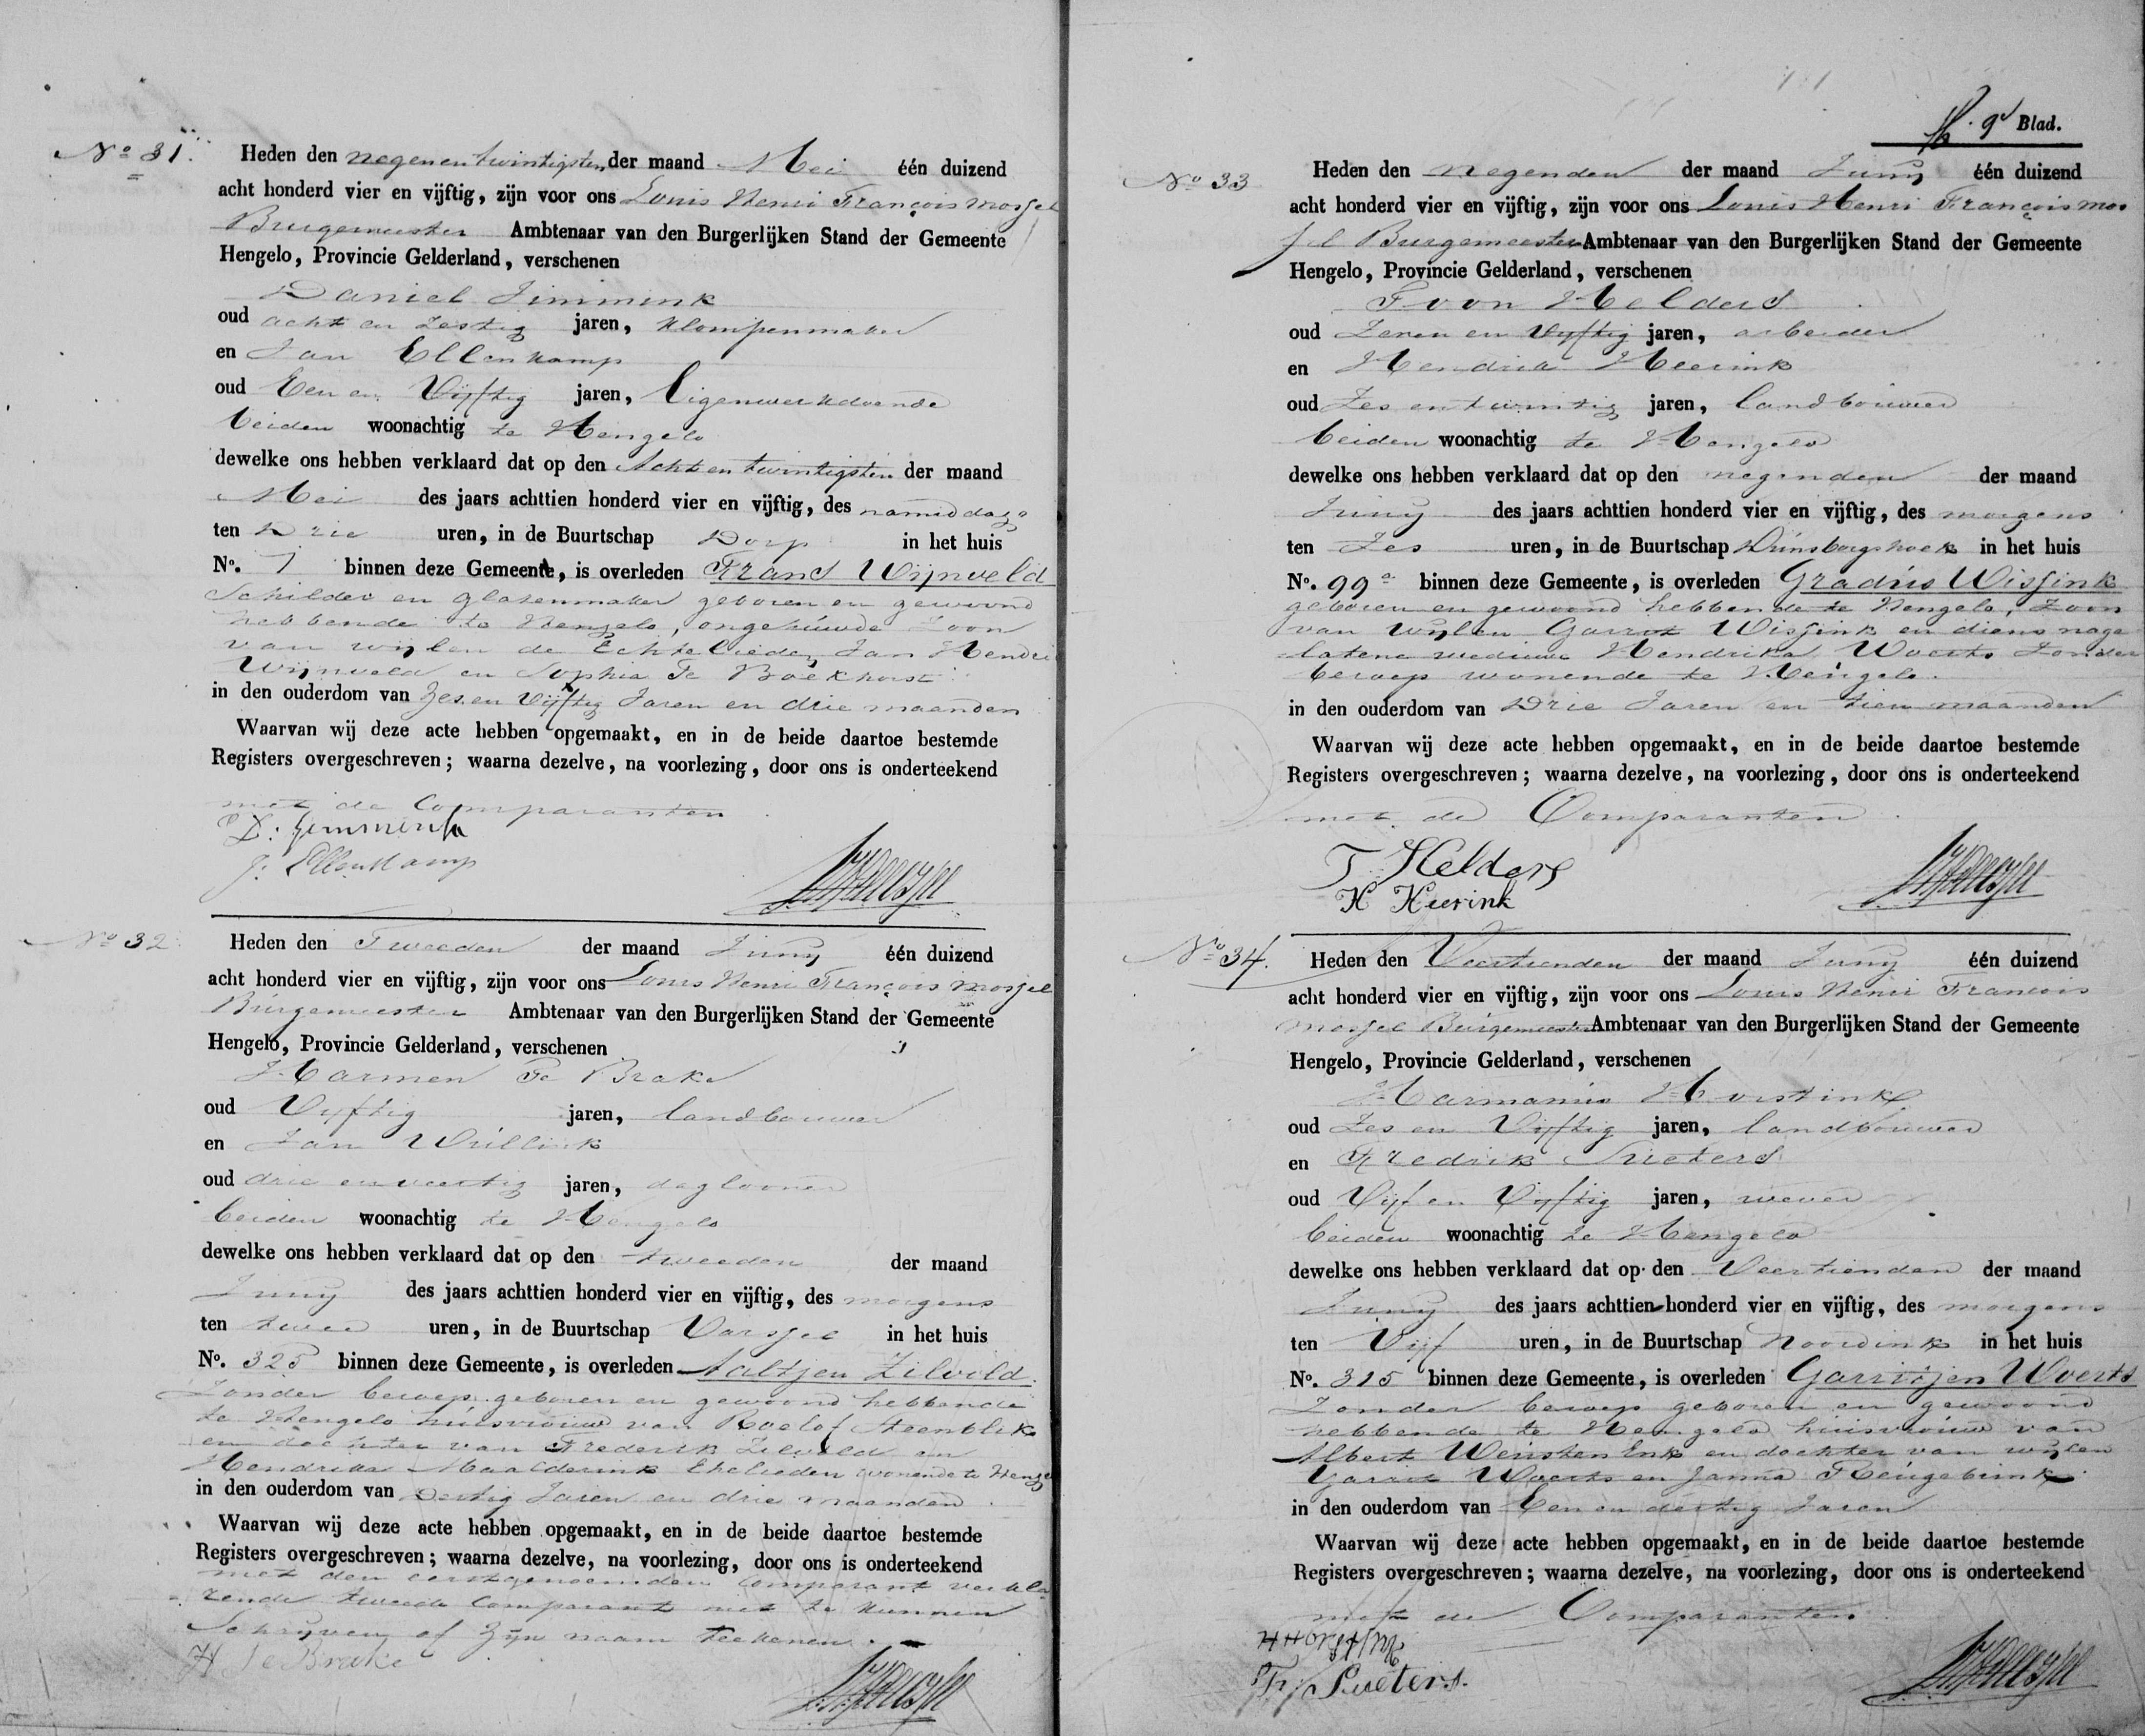 No 31.
Heden den negenentwintigsten der maand Mei één duizend
acht honderd vier en vijftig, zijn voor ons Louis Henri François Mossel
Burgemeester Ambtenaar van den Burgerlijken Stand der Gemeente
Hengelo, Provincie Gelderland, verschenen
Daniel Jimmink
oud acht en Zestig jaren, Klompenmaker
en Jan Ellenkamp
oud Een en Vijftig jaren, Eigenwerkdoende
beiden woonachtig te Hengelo
dewelke ons hebben verklaard dat op den Acht en twintigsten der maand
Mei des jaars achttien honderd vier en vijftig, des namiddags
ten Drie uren, in de Buurtschap Dorp in het huis
No. 7 binnen deze Gemeente, is overleden Frans Wijnveld
Schilder en glazenmaker geboren en gewoond
hebbende te Hengelo, ongehuwde Zoon
van wijlen de Echtelieden Jan Hendrik
Wijnveld en Sophia Te Boekhorst
in den ouderdom van Zes en Vijftig Jaren en drie maanden
Waarvan wij deze acte hebben opgemaakt, en in de beide daartoe bestemde
Registers overgeschreven; waarna dezelve, na voorlezing, door ons is onderteekend
met de Comparanten
D: Jimmink
J: Ellenkamp
No 32
Heden den Tweeden der maand Juny één duizend
acht honderd vier en vijftig, zijn voor ons Louis Henri François Mossel
Burgemeester Ambtenaar van den Burgerlijken Stand der Gemeente
Hengelo, Provincie Gelderland, verschenen
Harmen Te Brake
oud Vyftig jaren, landbouwer
en Jan Wullink
oud drie en veertig jaren, daglooner
beiden woonachtig te Hengelo
dewelke ons hebben verklaard dat op den tweeden der maand
Juny des jaars achttien honderd vier en vijftig, des morgens
ten twee uren, in de Buurtschap Varssel in het huis
No. 325 binnen deze Gemeente, is overleden Aaltjen Zilvold
Zonder beroep geboren en gewoond hebbende
te Hengelo huisvrouw van Roelof Steenblik
en dochter van Frederik Zilvold en
Hendrika Maalderink Ehelieden wonende te Hengelo
in den ouderdom van Dertig Jaren en drie maanden
Waarvan wij deze acte hebben opgemaakt, en in de beide daartoe bestemde
Registers overgeschreven; waarna dezelve, na voorlezing, door ons is onderteekend
met den eerstgenoemden Comparant verkla
rende tweede Comparant niet te kunnen
Schrijven of Zijn naam teekenen.
H Te Brake
9e Blad.
No 33
Heden den negenden der maand Juny één duizend
acht honderd vier en vijftig, zijn voor ons Louis Henri François Mos
sel Burgemeester Ambtenaar van den Burgerlijken Stand der Gemeente
Hengelo, Provincie Gelderland, verschenen
Toon Helders
oud Zeven en Vyftig jaren, arbeider
en Hendrik Heerink
oud Zes en twintig jaren, landbouwer
beiden woonachtig te Hengelo
dewelke ons hebben verklaard dat op den negenden der maand
Juny des jaars achttien honderd vier en vijftig, des morgens
ten Zes uren, in de Buurtschap Dunsborgshoek in het huis
No. 99a binnen deze Gemeente, is overleden Gradus Wissink
geboren en gewoond hebbende te Hengelo, Zoon
van wijlen Garrit Wissink en diens nage
latene weduwe Hendrika Woerts Zonder
beroep wonende te Hengelo.
in den ouderdom van Drie Jaren en tien maanden
Waarvan wij deze acte hebben opgemaakt, en in de beide daartoe bestemde
Registers overgeschreven; waarna dezelve, na voorlezing, door ons is onderteekend
met de Comparanten
T Helders
H Heerink
No 34.
Heden den Veertienden der maand Juny één duizend
acht honderd vier en vijftig, zijn voor ons Louis Henri Francois
Mossel Burgemeester Ambtenaar van den Burgerlijken Stand der Gemeente
Hengelo, Provincie Gelderland, verschenen
Harmanus Horstink
oud Zes en Vijftig jaren, landbouwer
en Fredrik Sueters
oud Vijf en Vijftig jaren, wever
beiden woonachtig te Hengelo
dewelke ons hebben verklaard dat op den Veertienden der maand
Juny des jaars achttien honderd vier en vijftig, des morgens
ten Vijf uren, in de Buurtschap Noordink in het huis
No. 315 binnen deze Gemeente, is overleden Garritjen Woerts
Zonder beroep geboren en gewoond
hebbende te Hengelo huisvrouw van
Albert Wensken Enk en dochter van wijlen
Garrit Woerts en Janna Reugebrink
in den ouderdom van Een en dertig Jaren
Waarvan wij deze acte hebben opgemaakt, en in de beide daartoe bestemde
Registers overgeschreven; waarna dezelve, na voorlezing, door ons is onderteekend
met de Comparanten
Fr Sueters.